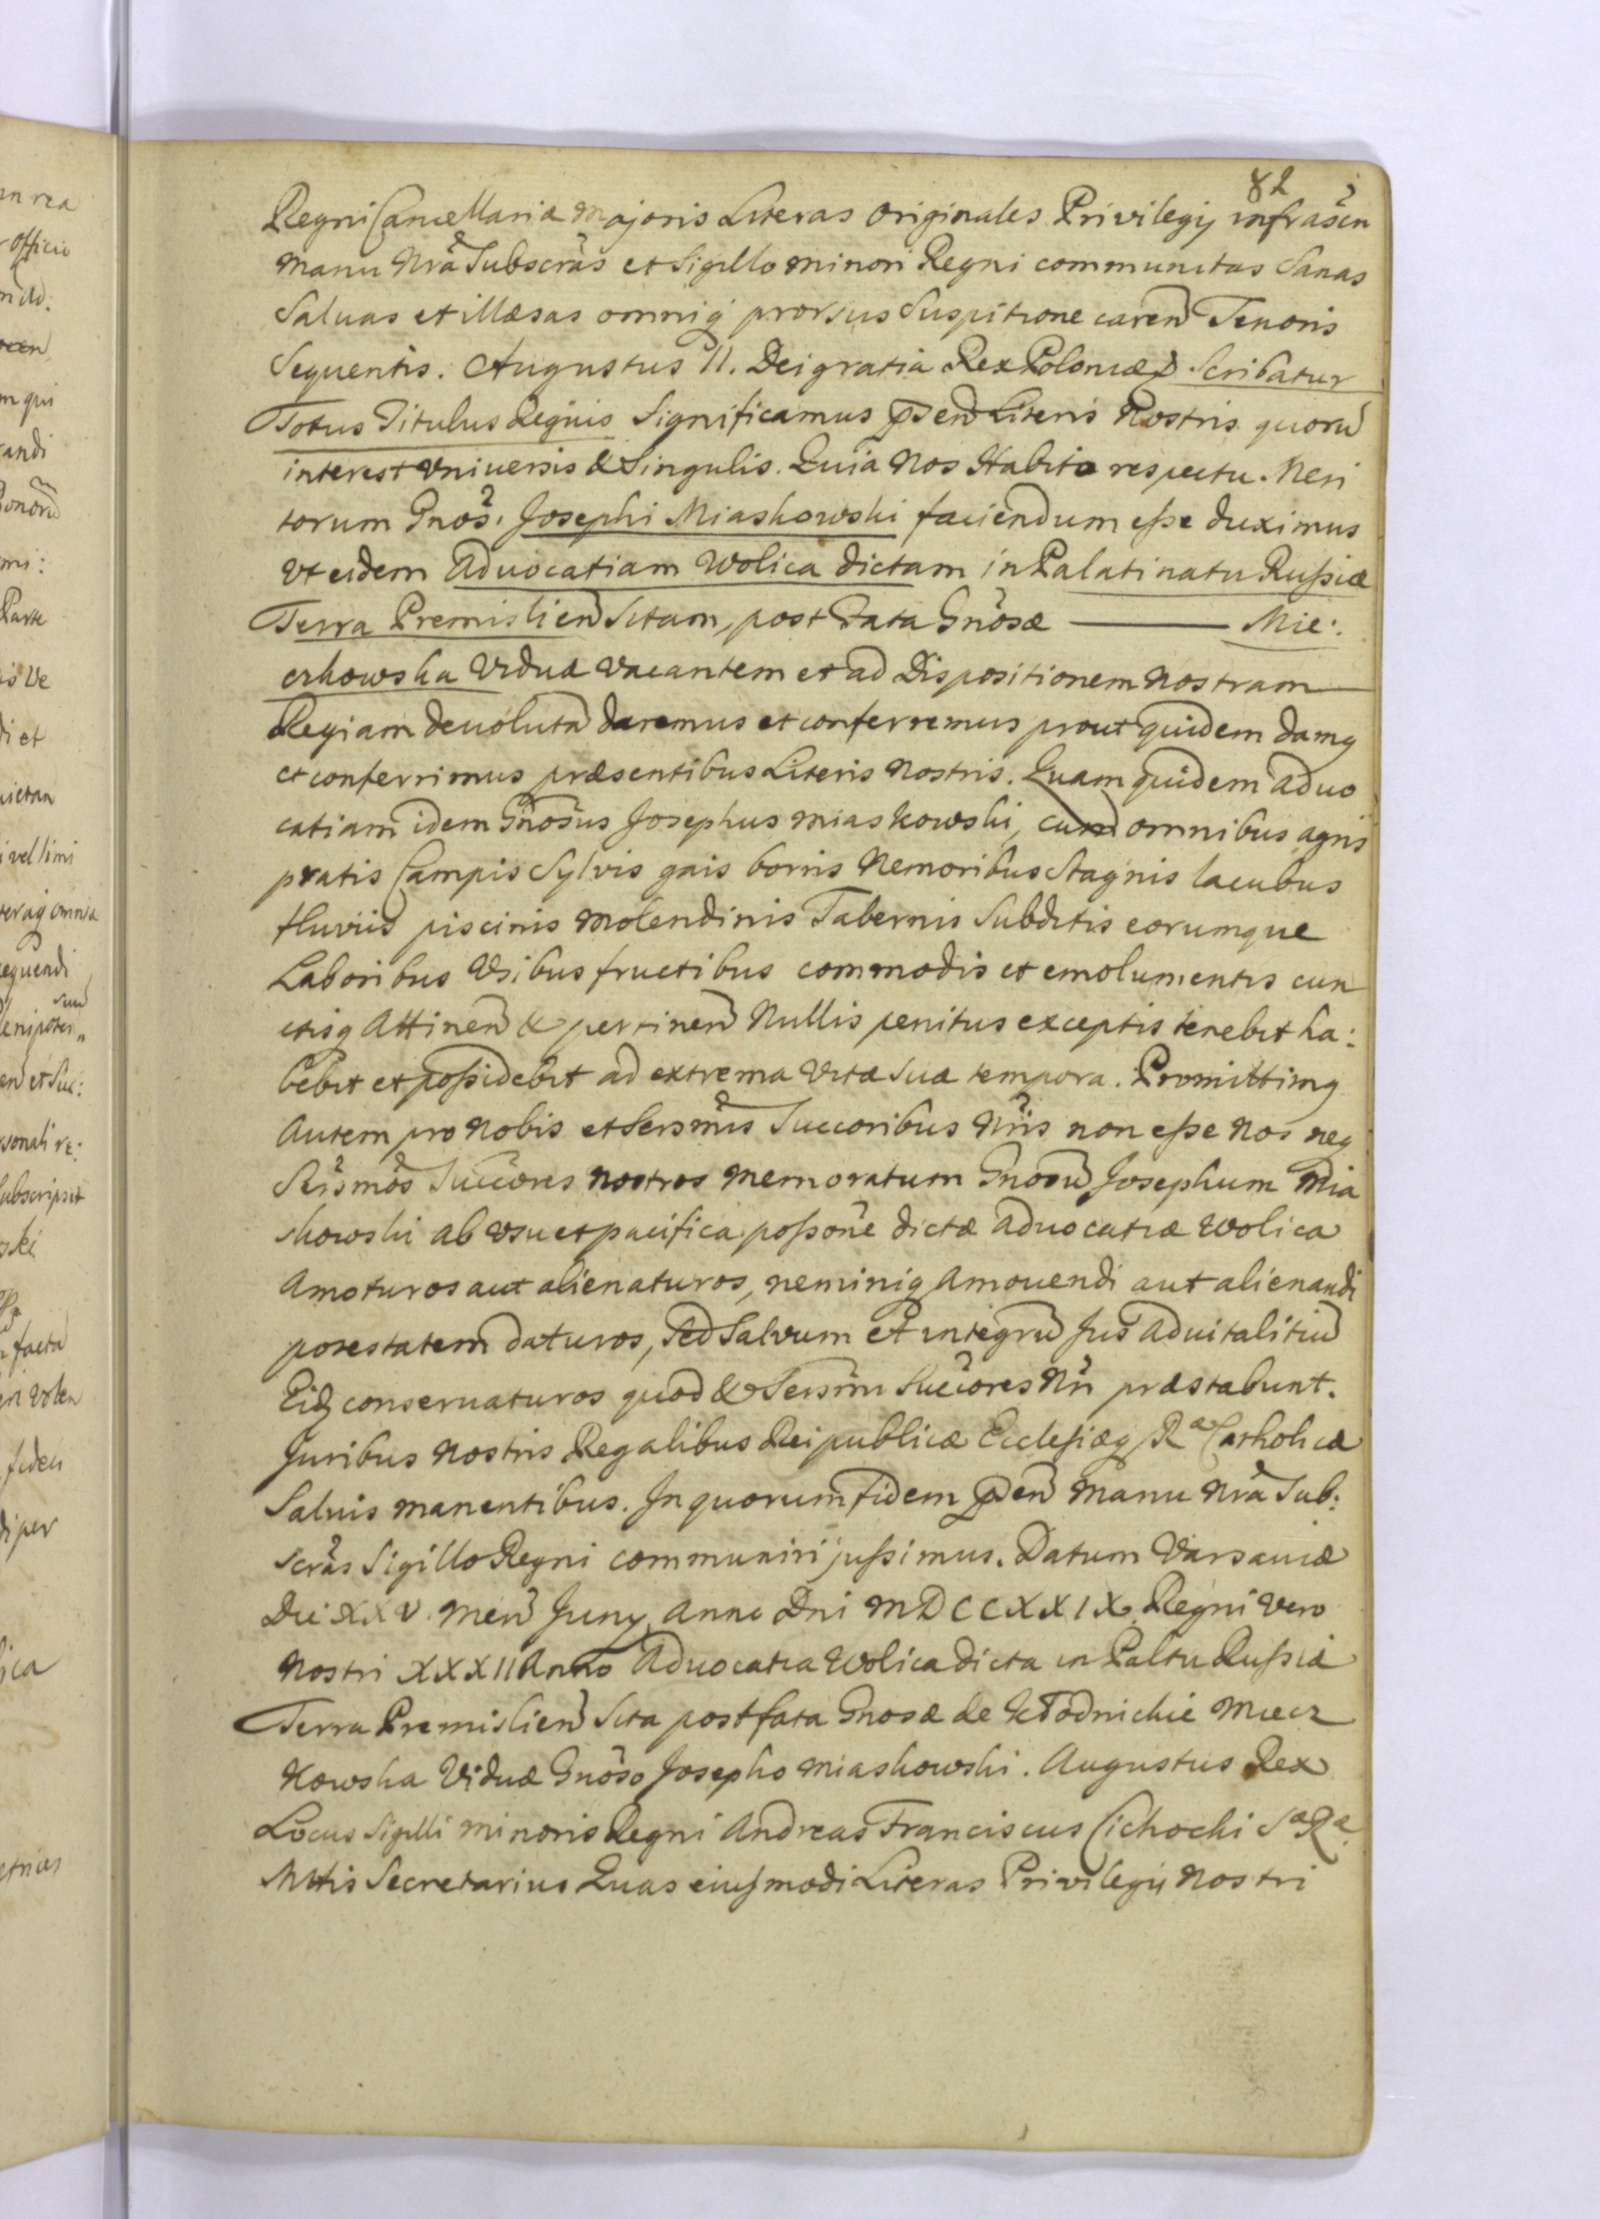 82
Regni Cancellaria Majoris Literas Originales Privilegij infrascên
Manu Nrã Subscrãs et Sigillo minori Regni communitas Sanas
Saluas et illæsas omniq prorsus Suspitione caren Tenoris
Sequentis. Augustus II. Dei gratia Rex Poloniæ Scribatur
Totus Titulus Regius Significamus psen Literis Nostris quorũ
interest Vniuersis & Singulis. Quia Nos Habito respectu. Meri
torum Gnosi Josephi Miaskowski faciendum esse duximus
Vt eidem Aduocatiam Wolica dictam in Palatinatu Russiæ
Terra Premislien Sitam, post Fata Gnosæ ——— Mie:
czkowska Viduæ Vacantem et ad Dispositionem nostram
Regiam deuolutã daremus et conferremus prout quidem damq
et conferrimus præsentibus Literis nostris. Quam quidem Aduo
catiam idem Gnosus Josephus Miaskowski, cum omnibus agris
pratis Campis Sylvis gais borris Nemoribus Stagnis lacubus
fluviis piscinis Molendinis Tabernis Subditis eorumque
Laboribus Vsibus fructibus commodis et emolumentis cun
ctisq Attinen & pertinen Nullis penitus exceptis tenebit ha:
bebit et possidebit ad extrema Vitæ Suæ tempora. Promittimq
Autem pro Nobis et Sersmis Succoribus Nris non esse Nos neq
Sersmos Succores nostros Memoratum Gnosũ Josephum Mia
skowski ab Vsu et pacifica possone dictæ Aduocatiæ Wolica
Amoturos aut alienaturos, neminiq Amouendi aut alienandi
potestatem daturos, Sed Salvum et integrũ Jus Aduitalitiũ
Eid conseruaturos quod & Sersmi Succores Nri præstabunt.
Juribus Nostris Regalibus Reipublicæ Ecclesiæq Rª Catholicæ
Saluis manentibus. In quorum fidem psen Manu Nrã Sub:
scrãs Sigillo Regni communiri jussimus. Datum Varsauiæ
Die XXV. Men Juny Anno Dni MDCCXXIX Regni Vero
Nostri XXXII Anno Aduocatia Wolica dicta in Paltu Russiæ
Terra Premislien Sita post fata Gnosæ de Kłodnickie Miecz
Kowska Viduæ Gnoso Josepho Miaskowski. Augustus Rex
Locus Sigilli Minoris Regni Andreas Franciscus Cichocki Sª Rª
Mttis Secretarius Quas eiusmodi Literas Privilegij Nostri